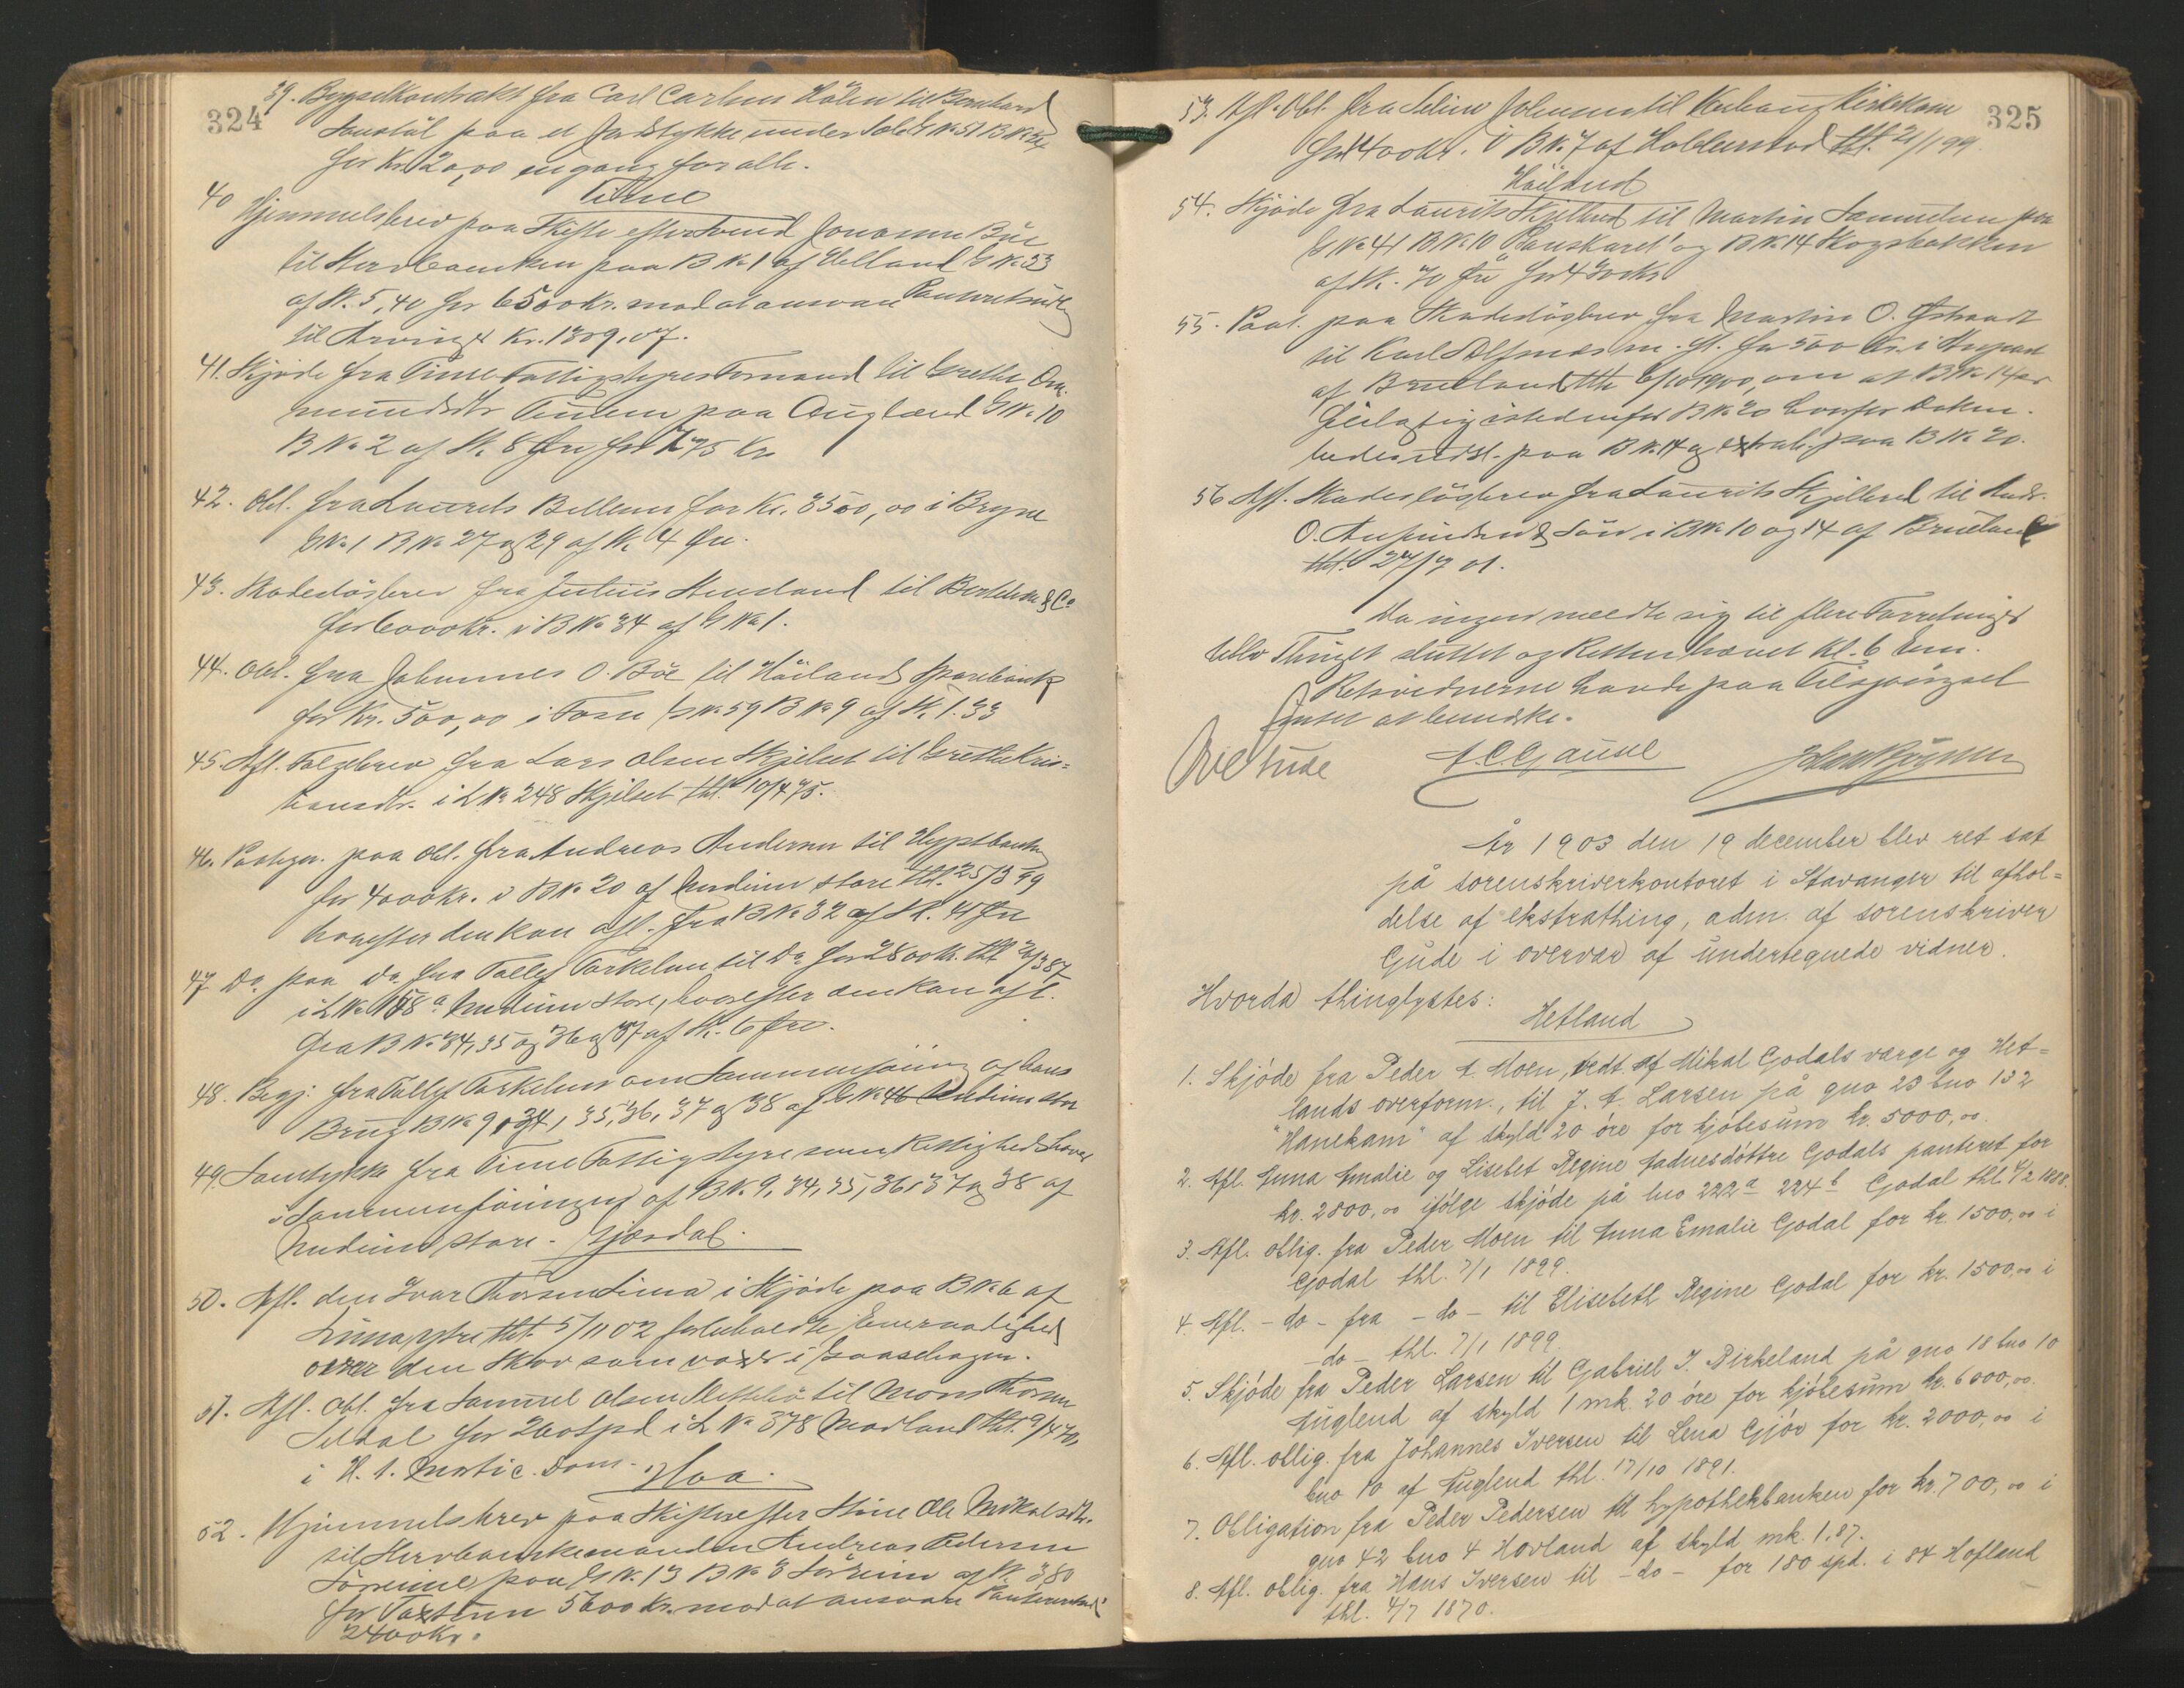 324
39. Bygselkontrakt fra Carl Carlsen Hölen til Bernhard
paa et Jordstykke under Sole G No 51 B No
for Kr. 20,00 engang for alle.
Time
40 Hjemmelsbrev paa Skifte efter Jonasen Böe
til paa B No 1 af Helland G No 33
af Sk. 5,40 for 6500 Kr. mod at ansvare Panteretsudl.
til Arving Kr. 1809,07.
41. Skjöde fra Time Fattigstyres Formand til Grethe Om-
mundsdtr. Tunem paa Augland G No 10
B No 2 af Sk. 8 Öre for 175 Kr
42. Obl. fra Laurits Bellesen for Kr. 3500,00 i Bryne
G No 1 B No 27 og 29 af Sk. 4 Öre.
43. Skadeslösbrev fra Julius til Bertelsen & Co
for 6000 Kr. i B No 34 af G No 1.
44. Obl. fra Johannes O. Böe til Höilands Sparebank
for Kr. 500,00 i Fosse G No 59 B No 9 af Sk. 1.33
45. Afl. Fölgebrev fra Lars Olsen Skjelset til Grethe Kris-
tiansdtr. i L No 248 Skjelset thl. 10/4 75.
46. Paategn. paa Obl. fra Andreas Andersen til Hypothbanken
for 4000 Kr. i B No 20 af Undeim store thl. 25/3 99
hvorefter den kan afl. fra B No 32 af Sk. 41 Öre
47 Do paa Do fra Tollef Torkelsen til Do for 2800 Kr. thl. 2/3 87
i L No 158 a Undeim store, hvorefter den kan afl.
fra B No 34, 35 og 36 og 37 af Sk. 6 Öre.
48. Begj. fra Tollef Torkelsen om Sammenföining af hans
Brug B No 9, 34, 35, 36, 37 og 38 af G No 46 Undeim store
49. Samtykke fra Time Fattigstyre som Rettighedshaver
i Sammenföiningen af B No 9, 34, 35, 36, 37 og 38 af
Undeim store. Gjesdal.
50. Afl. den Ivar Thorsen Lima i Skjöde paa B No 6 af
Lima ytre thl. 5/11 02 forbeholdte Eneraadighed
over den Skov som voxer i
51. Afl. Obl. fra Samuel Olsen til Mons Thorsen
Seldal for 260 Spd i L No 378 Madland thl. 9/4 70,
i H. t. Mortif. Dom. Haa.
52. Hjemmelsbrev paa Skifte efter Stine Ole Mikalsdtr.
til Andreas Pedersen
paa G No 13 B No 3 af Sk. 3,80
for Taxtsum 5600 Kr. mod at ansvare
2400 Kr.
325
53. Afl. Obl. fra Johnsen til Varhaug Kirkekasse
for 400 Kr. i B No 7 af thl. 21/1 99.
Höiland
54. Skjöde fra Laurits Skjelbred til Martin Samuelsen paa
G No 41 B No 10 "Ranskaret" og B No 14 Skogsbakken
af Sk. 70 Öre for 430 Kr
55. Paat. paa Skadeslösbrev fra Martin O. Ostraadt
til Karl m. fl. for 500 Kr. i Anpart
af Brueland thl. 6/10 1900, om at B No 14 er
istedenfor B No 20 hvorfor Dokm.
paa B No 14 og paa B No 20.
56 Afl. Skadeslösbrev fra Laurits Skjelbred til Andr.
O. & Sön i B No 10 og 14 af Brueland
thl. 27/7 01.
Da ingen meldte sig til flere Forretninger
blev Thinget sluttet og Retten hævet Kl. 6 Em.
Retsvidnerne havde paa Tilspörgsel
Intet at bemærke.
Ove Gude A. C. Gausel
År 1903 den 19 december blev ret sat
på sorenskriverkontoret i Stavanger til afhol-
delse af ekstrathing, adm. af sorenskriver
Gude i overvær af undertegnede vidner.
Hvorda thinglystes:
Hetland
1. Skjöde fra Peder A. Moen, vedt. af Mikal Godals værge og Het-
lands overform., til J. A. Larsen på gno 23 bno 132
"Hanekam" af skyld 20 öre for kjöbesum kr. 5000,00.
2. Afl. Anna Amalie og Lisebet Regine Jadnesdöttre Godals panteret for
kr. 2800,00 ifölge skjöde på lno 222 a 224 b Godal thl. 4/2 1888.
3. Afl. oblig. fra Peder Moen til Anna Emalie Godal for kr. 1500,00 i
Godal thl. 7/1 1899.
4. Afl. - do - fra - do - til Elisebeth Regine Godal for kr. 1500,00 i
- do - thl. 7/1 1899.
5. Skjöde fra Peder Larsen til Gabriel I. Birkeland på gno 18 bno 10
Auglend af skyld 1 mk. 20 öre for kjöbesum kr. 6000,00.
6. Afl. oblig. fra Johannes Iversen til Lena Gjör for kr. 2000,00 i
bno 10 af Auglend thl. 17/10 1891.
7. Obligation fra Peder Pedersen til hypothekbanken for kr. 700,00 i
gno 42 bno 4 Hovland af skyld mk. 1.87.
8. Afl. oblig. fra Hans Iversen til - do - for 180 spd. i 84 Hofland
thl. 4/7 1870.